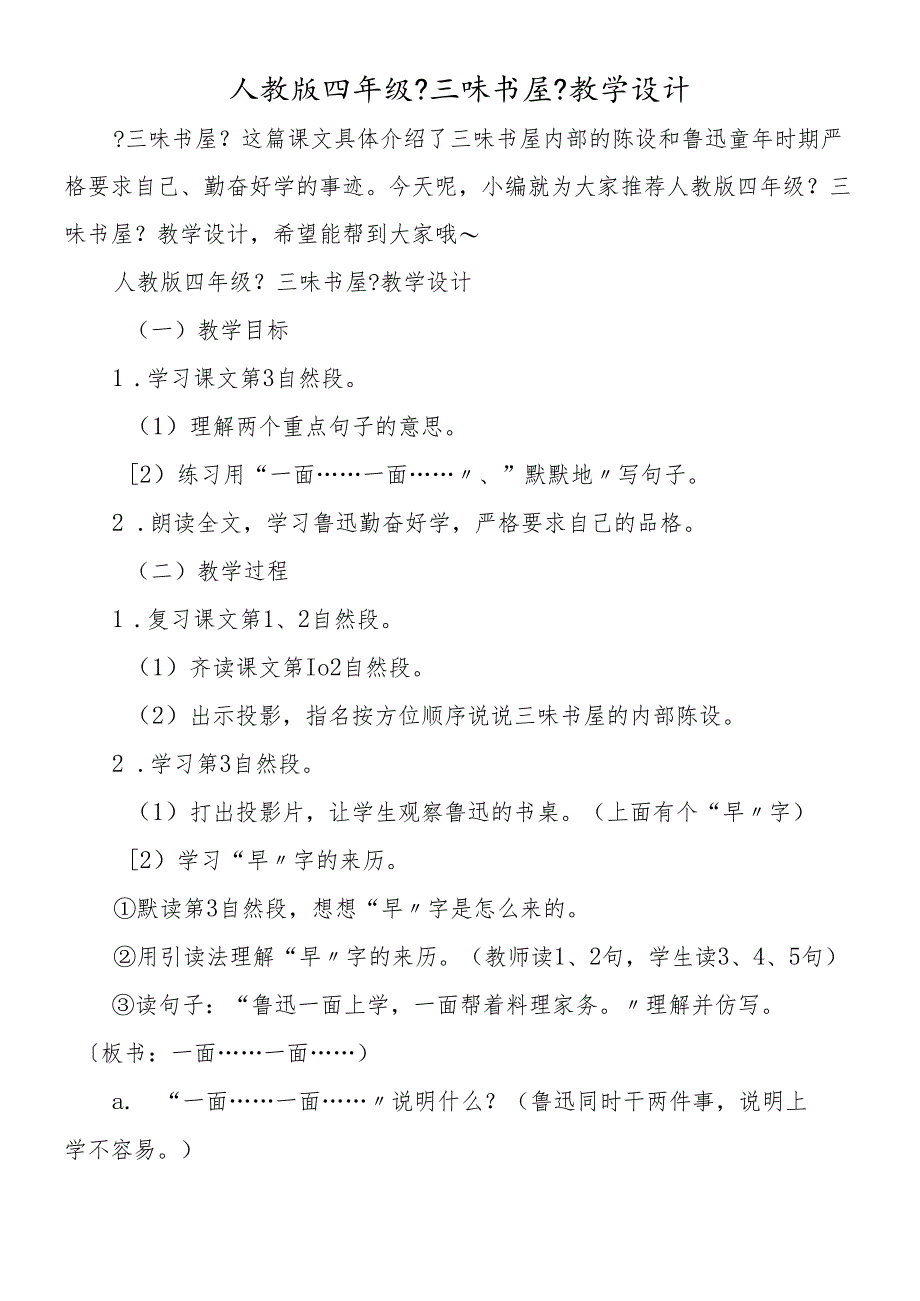 人教版四年级?三味书屋?教学设计
?三味书屋？这篇课文具体介绍了三味书屋内部的陈设和鲁迅童年时期严
格要求自己、勤奋好学的事迹。今天呢，小编就为大家推荐人教版四年级？三
味书屋？教学设计，希望能帮到大家哦～
人教版四年级？三味书屋?教学设计
（一）教学目标
1 .学习课文第3自然段。
（1）理解两个重点句子的意思。
[2）练习用“一面……一面……〃、”默默地〃写句子。
2 .朗读全文，学习鲁迅勤奋好学，严格要求自己的品格。
（二）教学过程
1 .复习课文第1、2自然段。
（1）齐读课文第Io2自然段。
（2）出示投影，指名按方位顺序说说三味书屋的内部陈设。
2 .学习第3自然段。
（1）打出投影片，让学生观察鲁迅的书桌。（上面有个“早〃字）
[2）学习“早〃字的来历。
①默读第3自然段，想想“早〃字是怎么来的。
②用引读法理解“早〃字的来历。（教师读1、2句，学生读3、4、5句）
③读句子：“鲁迅一面上学，一面帮着料理家务。〃理解并仿写。
〔板书：一面……一面……）
a. “一面……一面……〃说明什么？（鲁迅同时干两件事，说明上
学不容易。）